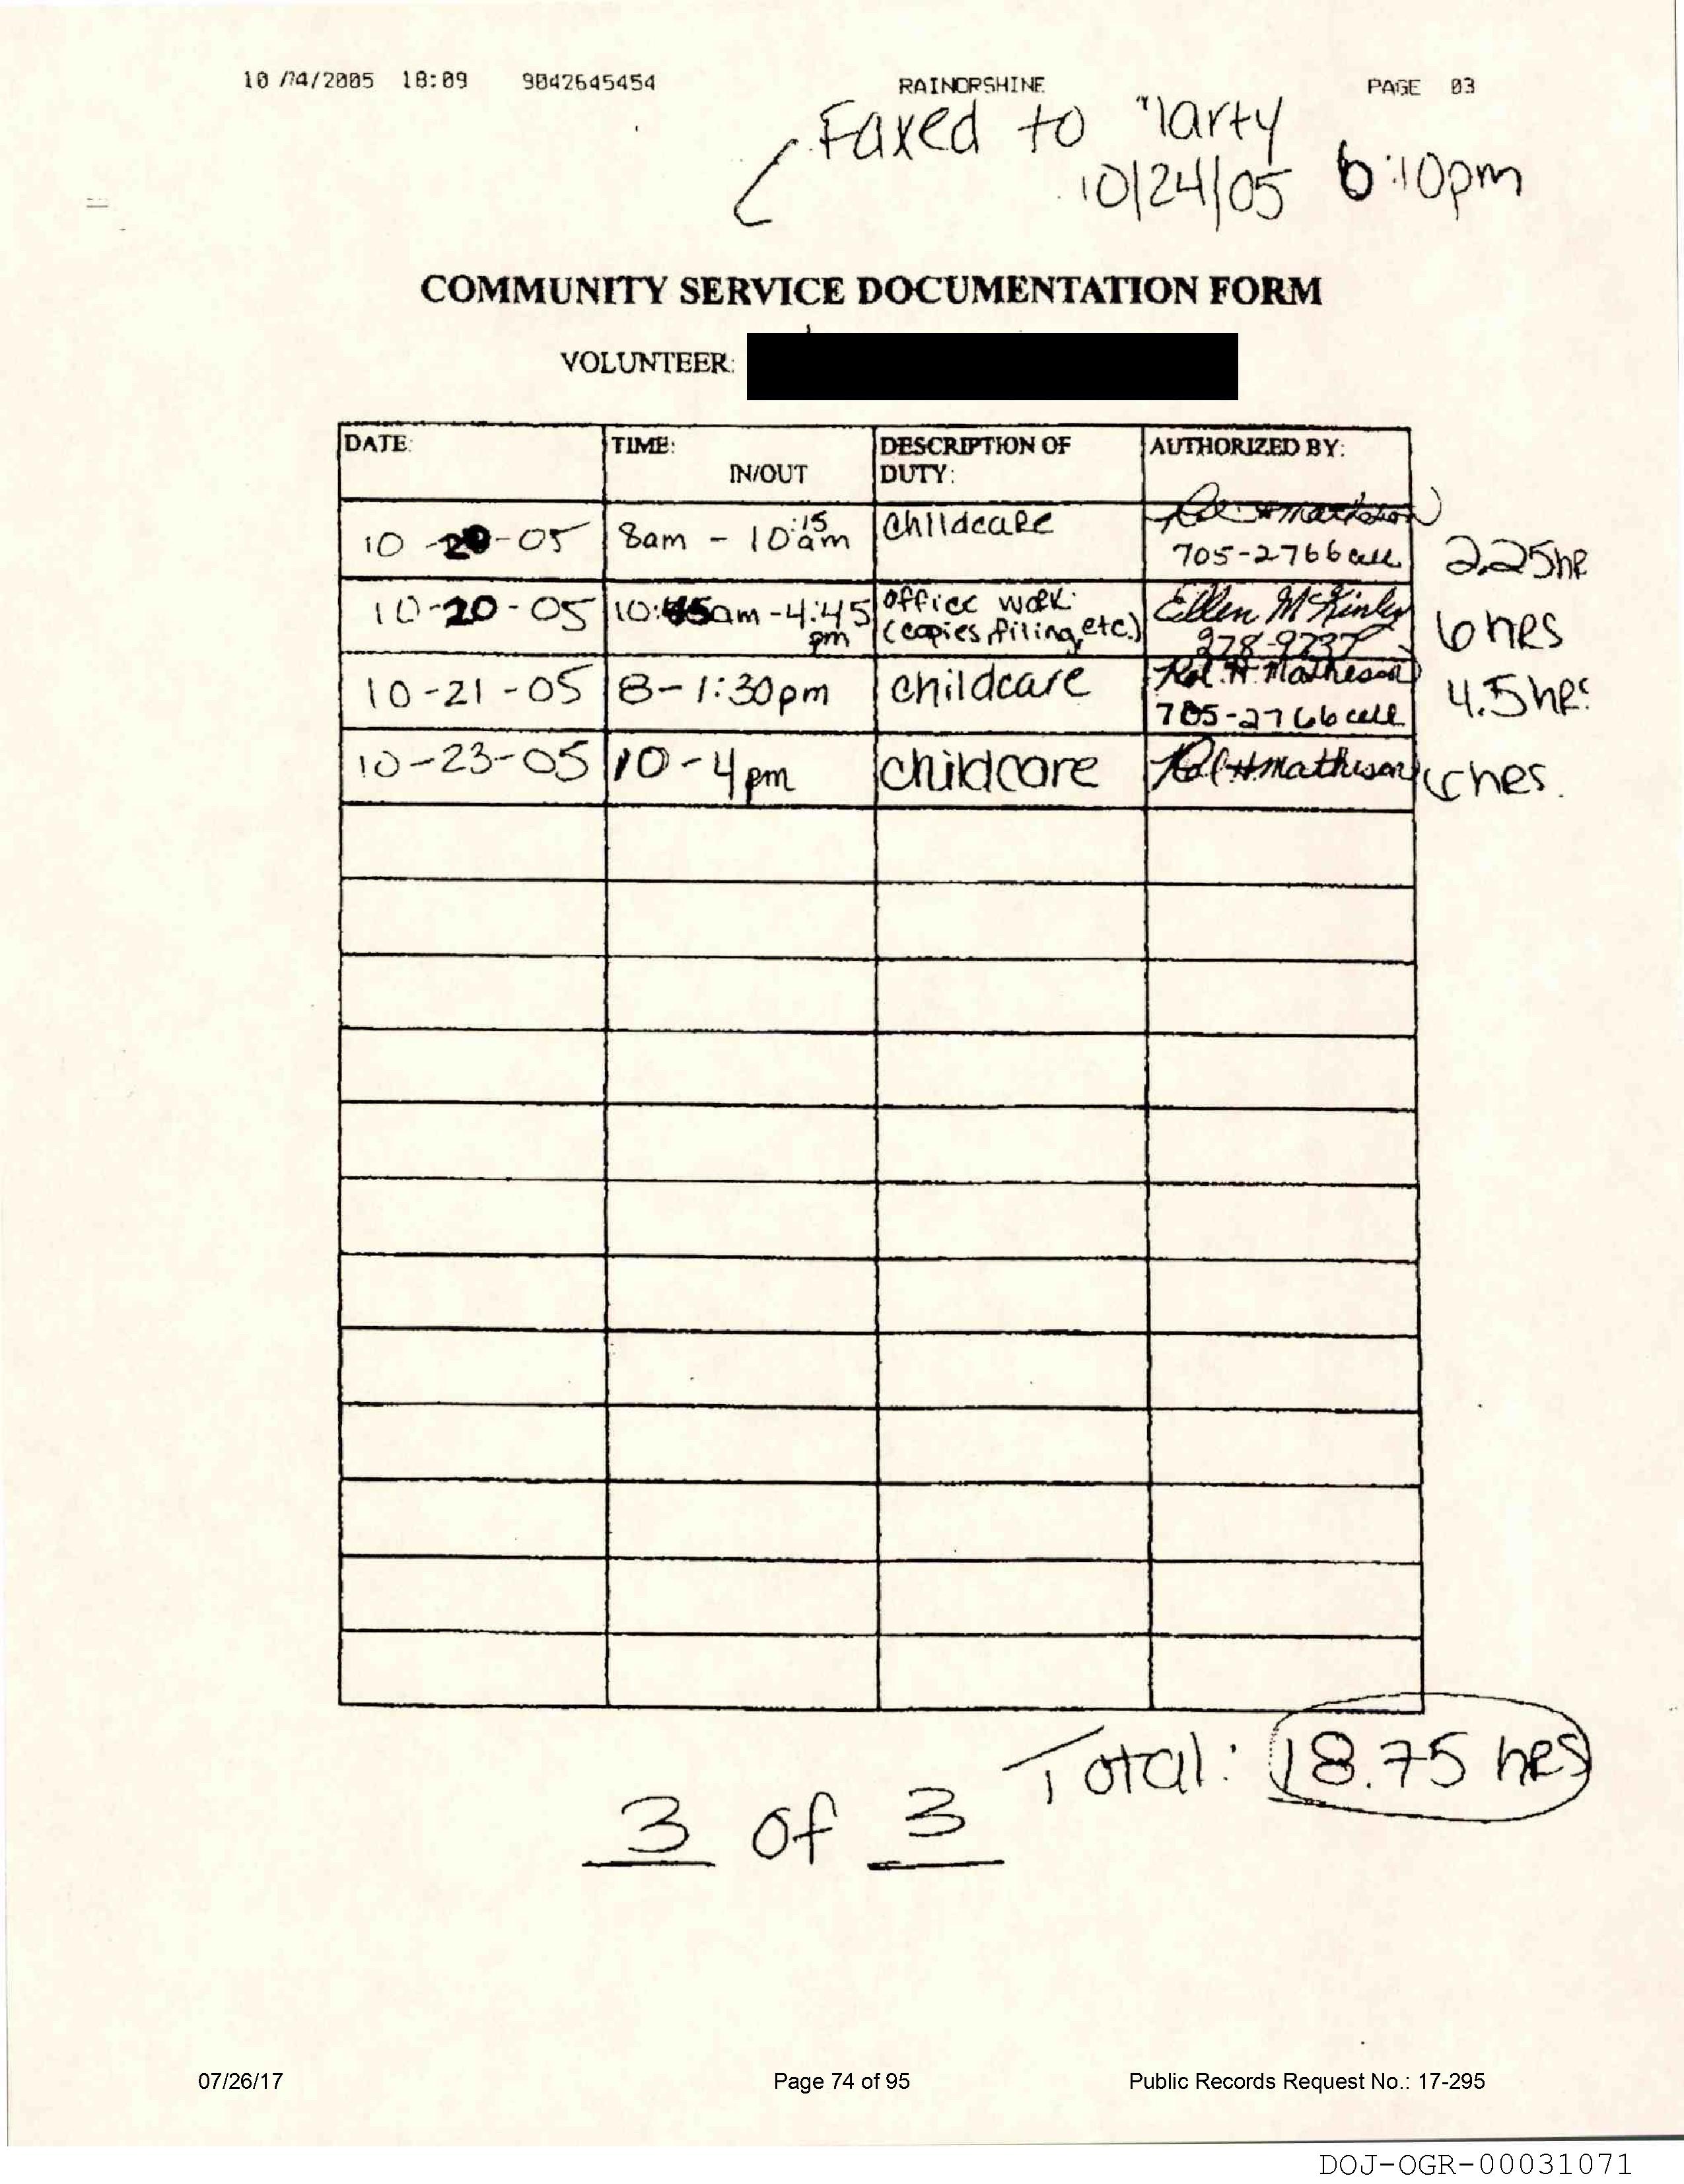 10/24/2005 18:09 9042645454 RAINORSHINE PAGE 03
Faxed to Marty
10/24/05 6:10pm
COMMUNITY SERVICE DOCUMENTATION FORM
VOLUNTEER:
DATE: TIME: IN/OUT DESCRIPTION OF DUTY: AUTHORIZED BY:
10-20-05 8am - 10:15am childcare 705-2766 cell 2.25hr
10-20-05 10:45am-4:45pm office work (copies, filing, etc.) Ellen McKinley 278-9737 6 hrs
10-21-05 8-1:30pm childcare H. Matheson 705-2766 cell 4.5hrs
10-23-05 10-4pm childcare H Matheson hrs.
Total: 18.75 hrs
3 of 3
07/26/17 Page 74 of 95 Public Records Request No.: 17-295
DOJ-OGR-00031071